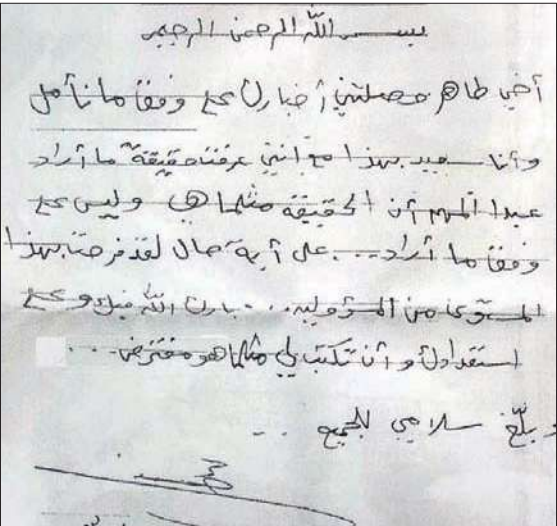 بسم الله الرحمن الرحيم
أخي طاهر وصلتني أخبارك وفقا ما نأمل
وأنا سعيد بهذا مع انني عرفت حقيقة ما أراد
عبدا المهم أن الحقيقة مثلما هي وليس
وفقا ما أراد... على أية حال لقد فرحت بهذا
المستوى من المسؤولية... بارك الله فيك و
استعدادك و أن تكتب لي مثلما هو مفترض...
و بلّغ سلامي للجميع ..